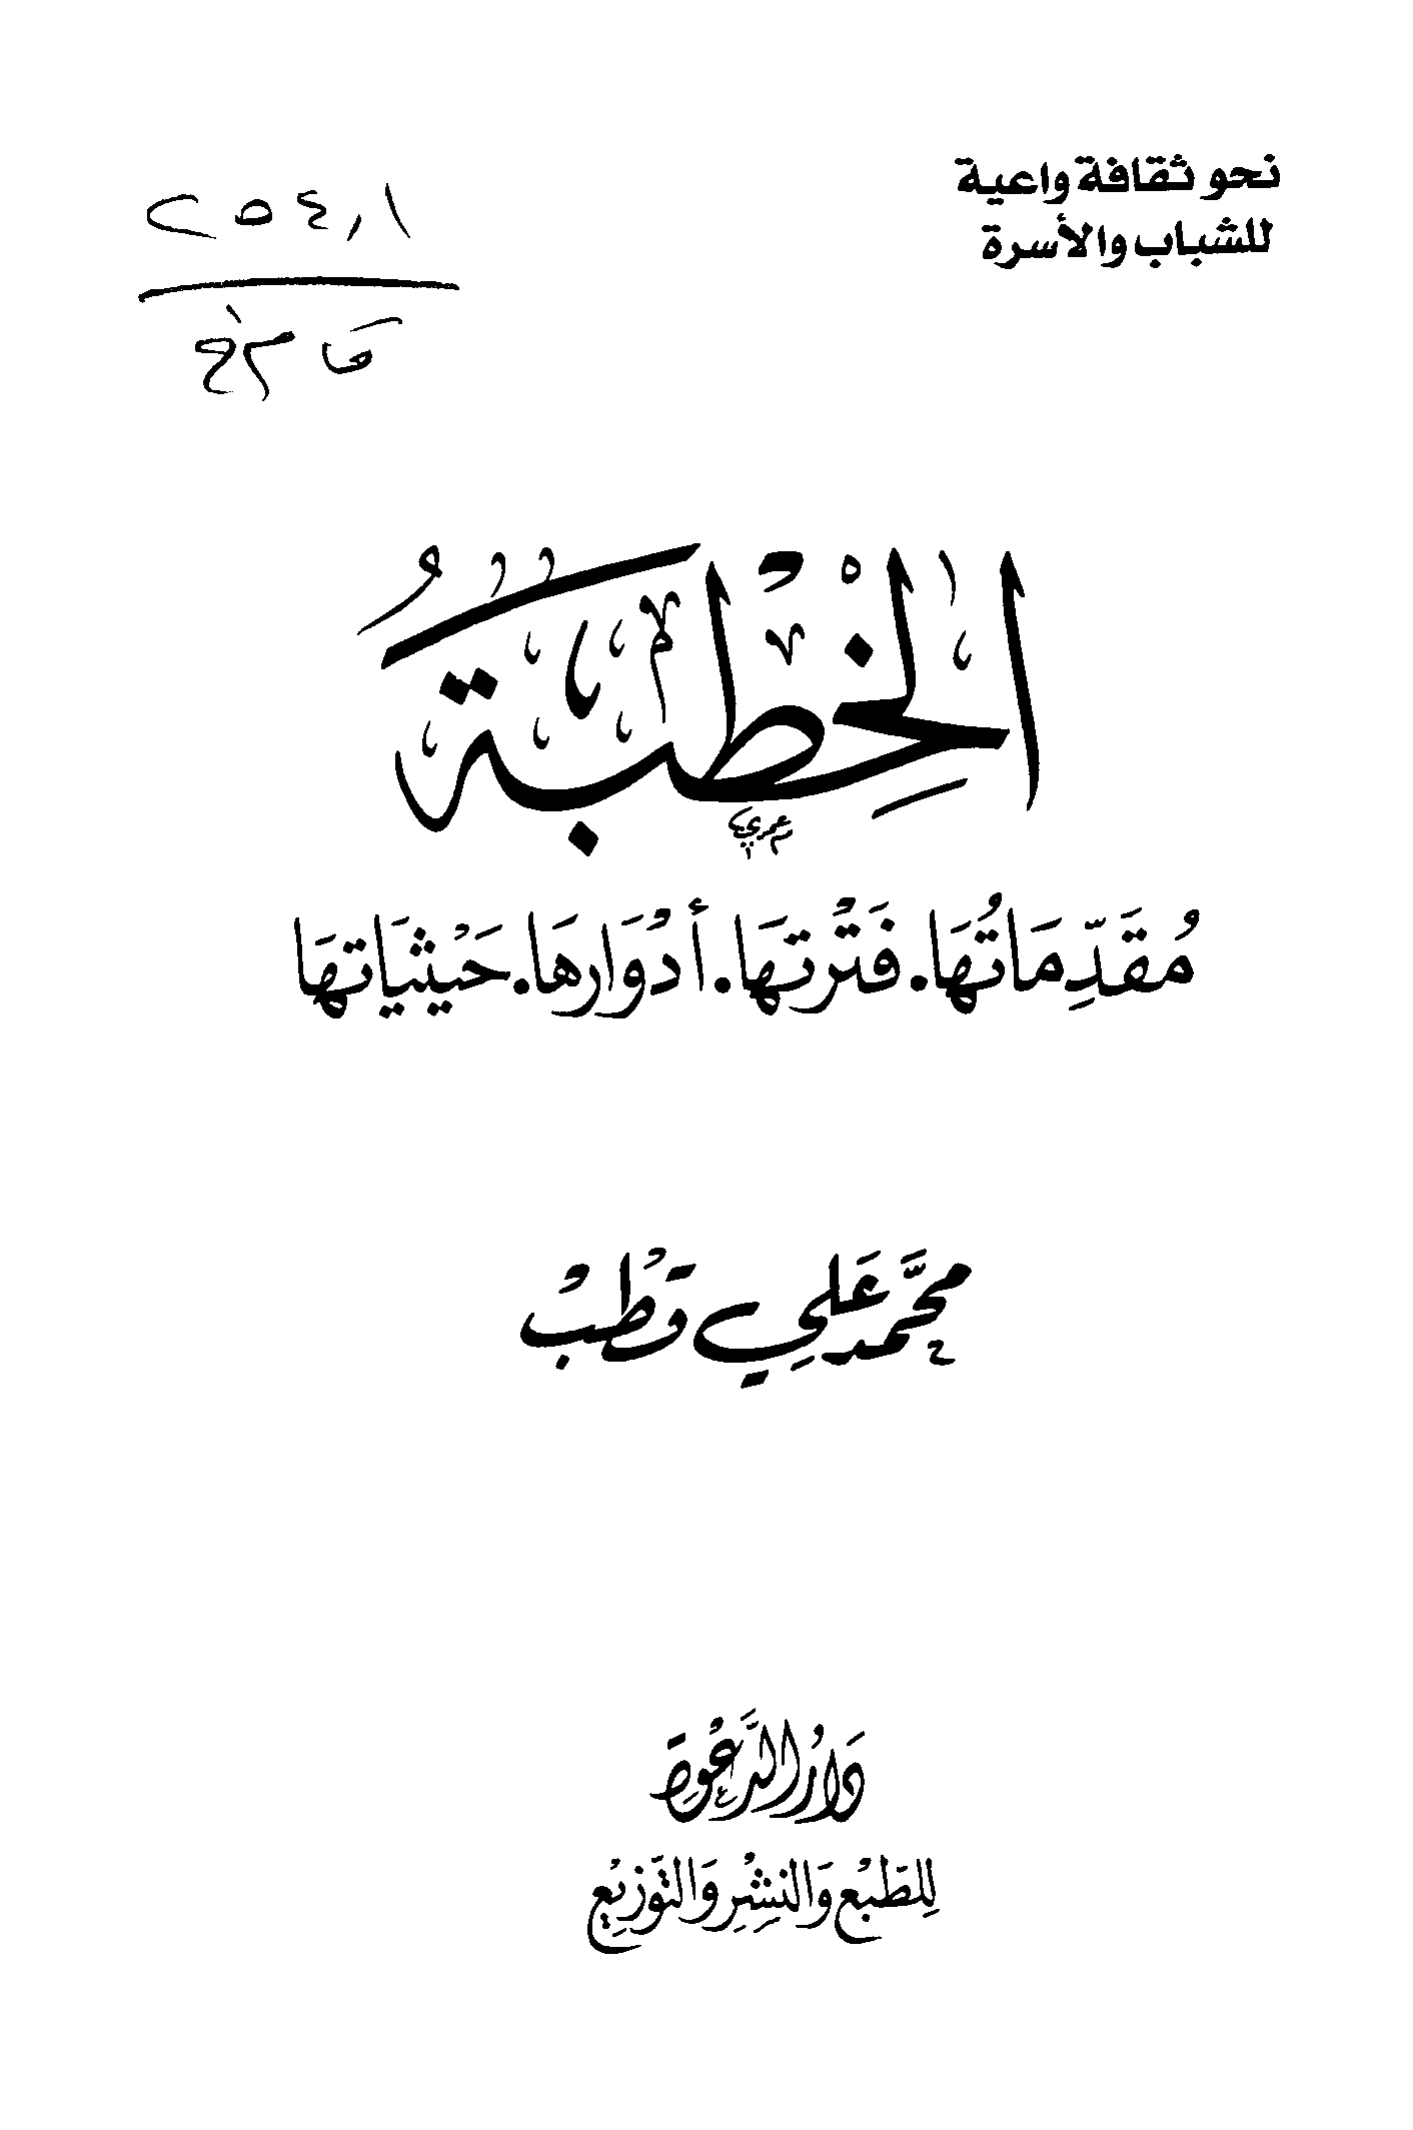 نحو ثقافة واعية
للشباب والأسرة
٢٥٤,١
الخِطْبَةُ
مُقَدِّمَاتُهَا. فَتْرتهَا. أدْوَارهَا. حَيْثيَاتهَا
محَمَّد عَلي قطْبْ
دَارُ الدَّعْوة
لِلطَبْع وَالنشْرِ وَالتَّوْزيْع